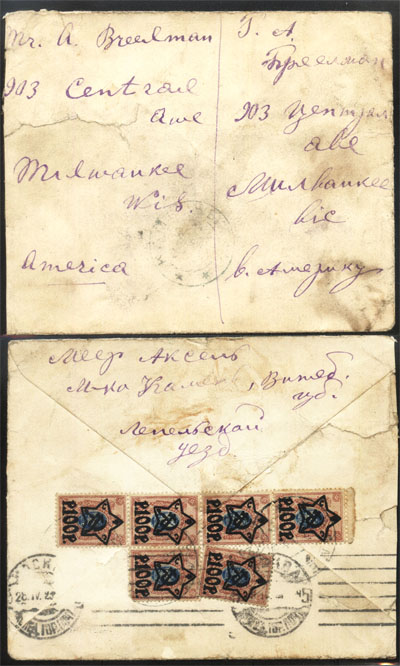 Mr. A. Breelman
903 Central
Awe
Milwaukee
Wis.
America
Г. А.
Бреелман
903 Централ
аве
Милваукее
віс
в. Америку
Меер Аксель
М-ко, Витеб.
губ.
Лепельский
уезд
100р. 100р. 100р. 100р.
100р. 100р.